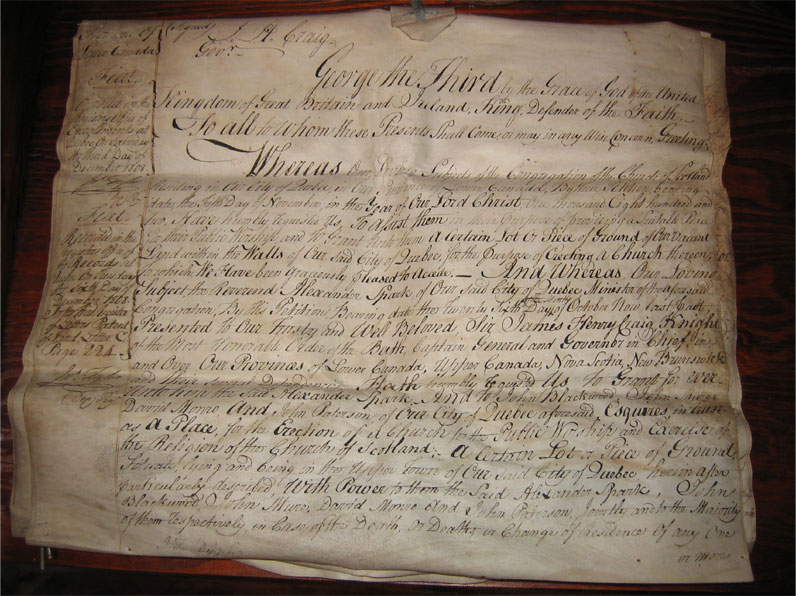 Province of
Lower Canada
Fiat
Recorded in the
Enrollments at
Quebec on Saturday
the third Day of
December 1808.
Fiat
Recorded in the
Office of
Records at
Quebec on Tuesday
the Sixth Day of
December 1808
in the Register
of Letters Patent
of Land Letter C
Page 224.
(Signed) J. H. Craig
Govr.
George the Third by the Grace of God of the United
Kingdom of Great Britain and Ireland, King, Defender of the Faith.
To all to Whom these Presents Shall Come, or may in any Wise Concern, Greeting.
Whereas Our Loving Subjects of the Congregation of the Church of Scotland
Residing in Our City of Quebec, in Our Province of Lower Canada, By their Petition bearing
date, the Fifth Day of November, in the Year of Our Lord Christ One thousand Eight hundred and
two Have humbly requested Us, To Assist them in their Purpose of providing a Suitable Place
for their Public Worship, and to Grant Unto them a Certain Lot or Piece of Ground of Our Vacant
Land within the Walls of Our Said City of Quebec, for the Purpose of Erecting a Church thereon,
to which We Have been Graciously Pleased to Accede. — And Whereas Our Loving
Subject the Reverend Alexander Spark of Our Said City of Quebec Minister of the aforesaid
Congregation, By his Petition Bearing date the twenty Sixth Day of October Now last past
Presented to Our trusty and Well Beloved Sir James Henry Craig Knight
of the Most Honorable Order of the Bath Captain General and Governor in Chief, in
and Over Our Provinces of Lower Canada, Upper Canada, Nova Scotia, New Brunswick
and their several Dependencies Hath humbly requested Us, To Grant for ever
Unto him the Said Alexander Spark, And to John Blackwood, John Mure,
David Monro And John Paterson, of Our City of Quebec aforesaid, Esquires, in trust
as a Place, for the Erection of A Church for the Public Worship and Exercise of
the Religion of the Church of Scotland; - A Certain Lot or Piece of Ground
Situate, lying and being in the Upper town of Our Said City of Quebec herein after
particularly described, With Power to them the Said Alexander Spark, John
Blackwood, John Mure, David Monro And John Paterson, Jointly and to the Majority
of them respectively, in Case of the Death, or Deaths or Change of Residence of any One
or more